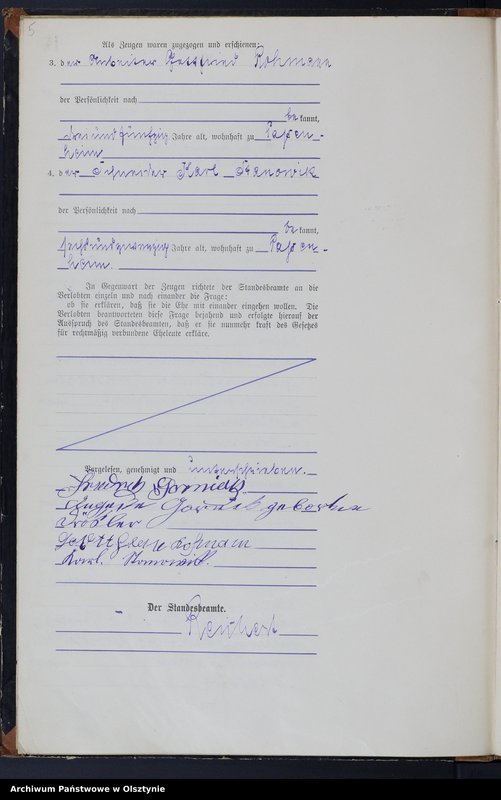 5
Als Zeugen waren zugezogen und erschienen:
3. der Arbeiter Gottfried Rohmann
der Persönlichkeit nach
be kannt,
dreiundfünfzig Jahre alt, wohnhaft zu Passen-
heim
4. der Schneider Karl
der Persönlichkeit nach
be kannt,
sechsundzwanzig Jahre alt, wohnhaft zu Passen-
heim.
In Gegenwart der Zeugen richtete der Standesbeamte an die
Verlobten einzeln und nach einander die Frage:
ob sie erklären, daß sie die Ehe mit einander eingehen wollen. Die
Verlobten beantworteten diese Frage bejahend und erfolgte hierauf der
Ausspruch des Standesbeamten, daß er sie nunmehr kraft des Gesetzes
für rechtmäßig verbundene Eheleute erkläre.
Vorgelesen, genehmigt und unterschrieben.
geboren
Karl.
Der Standesbeamte.
Reichert
Archiwum Państwowe w Olsztynie